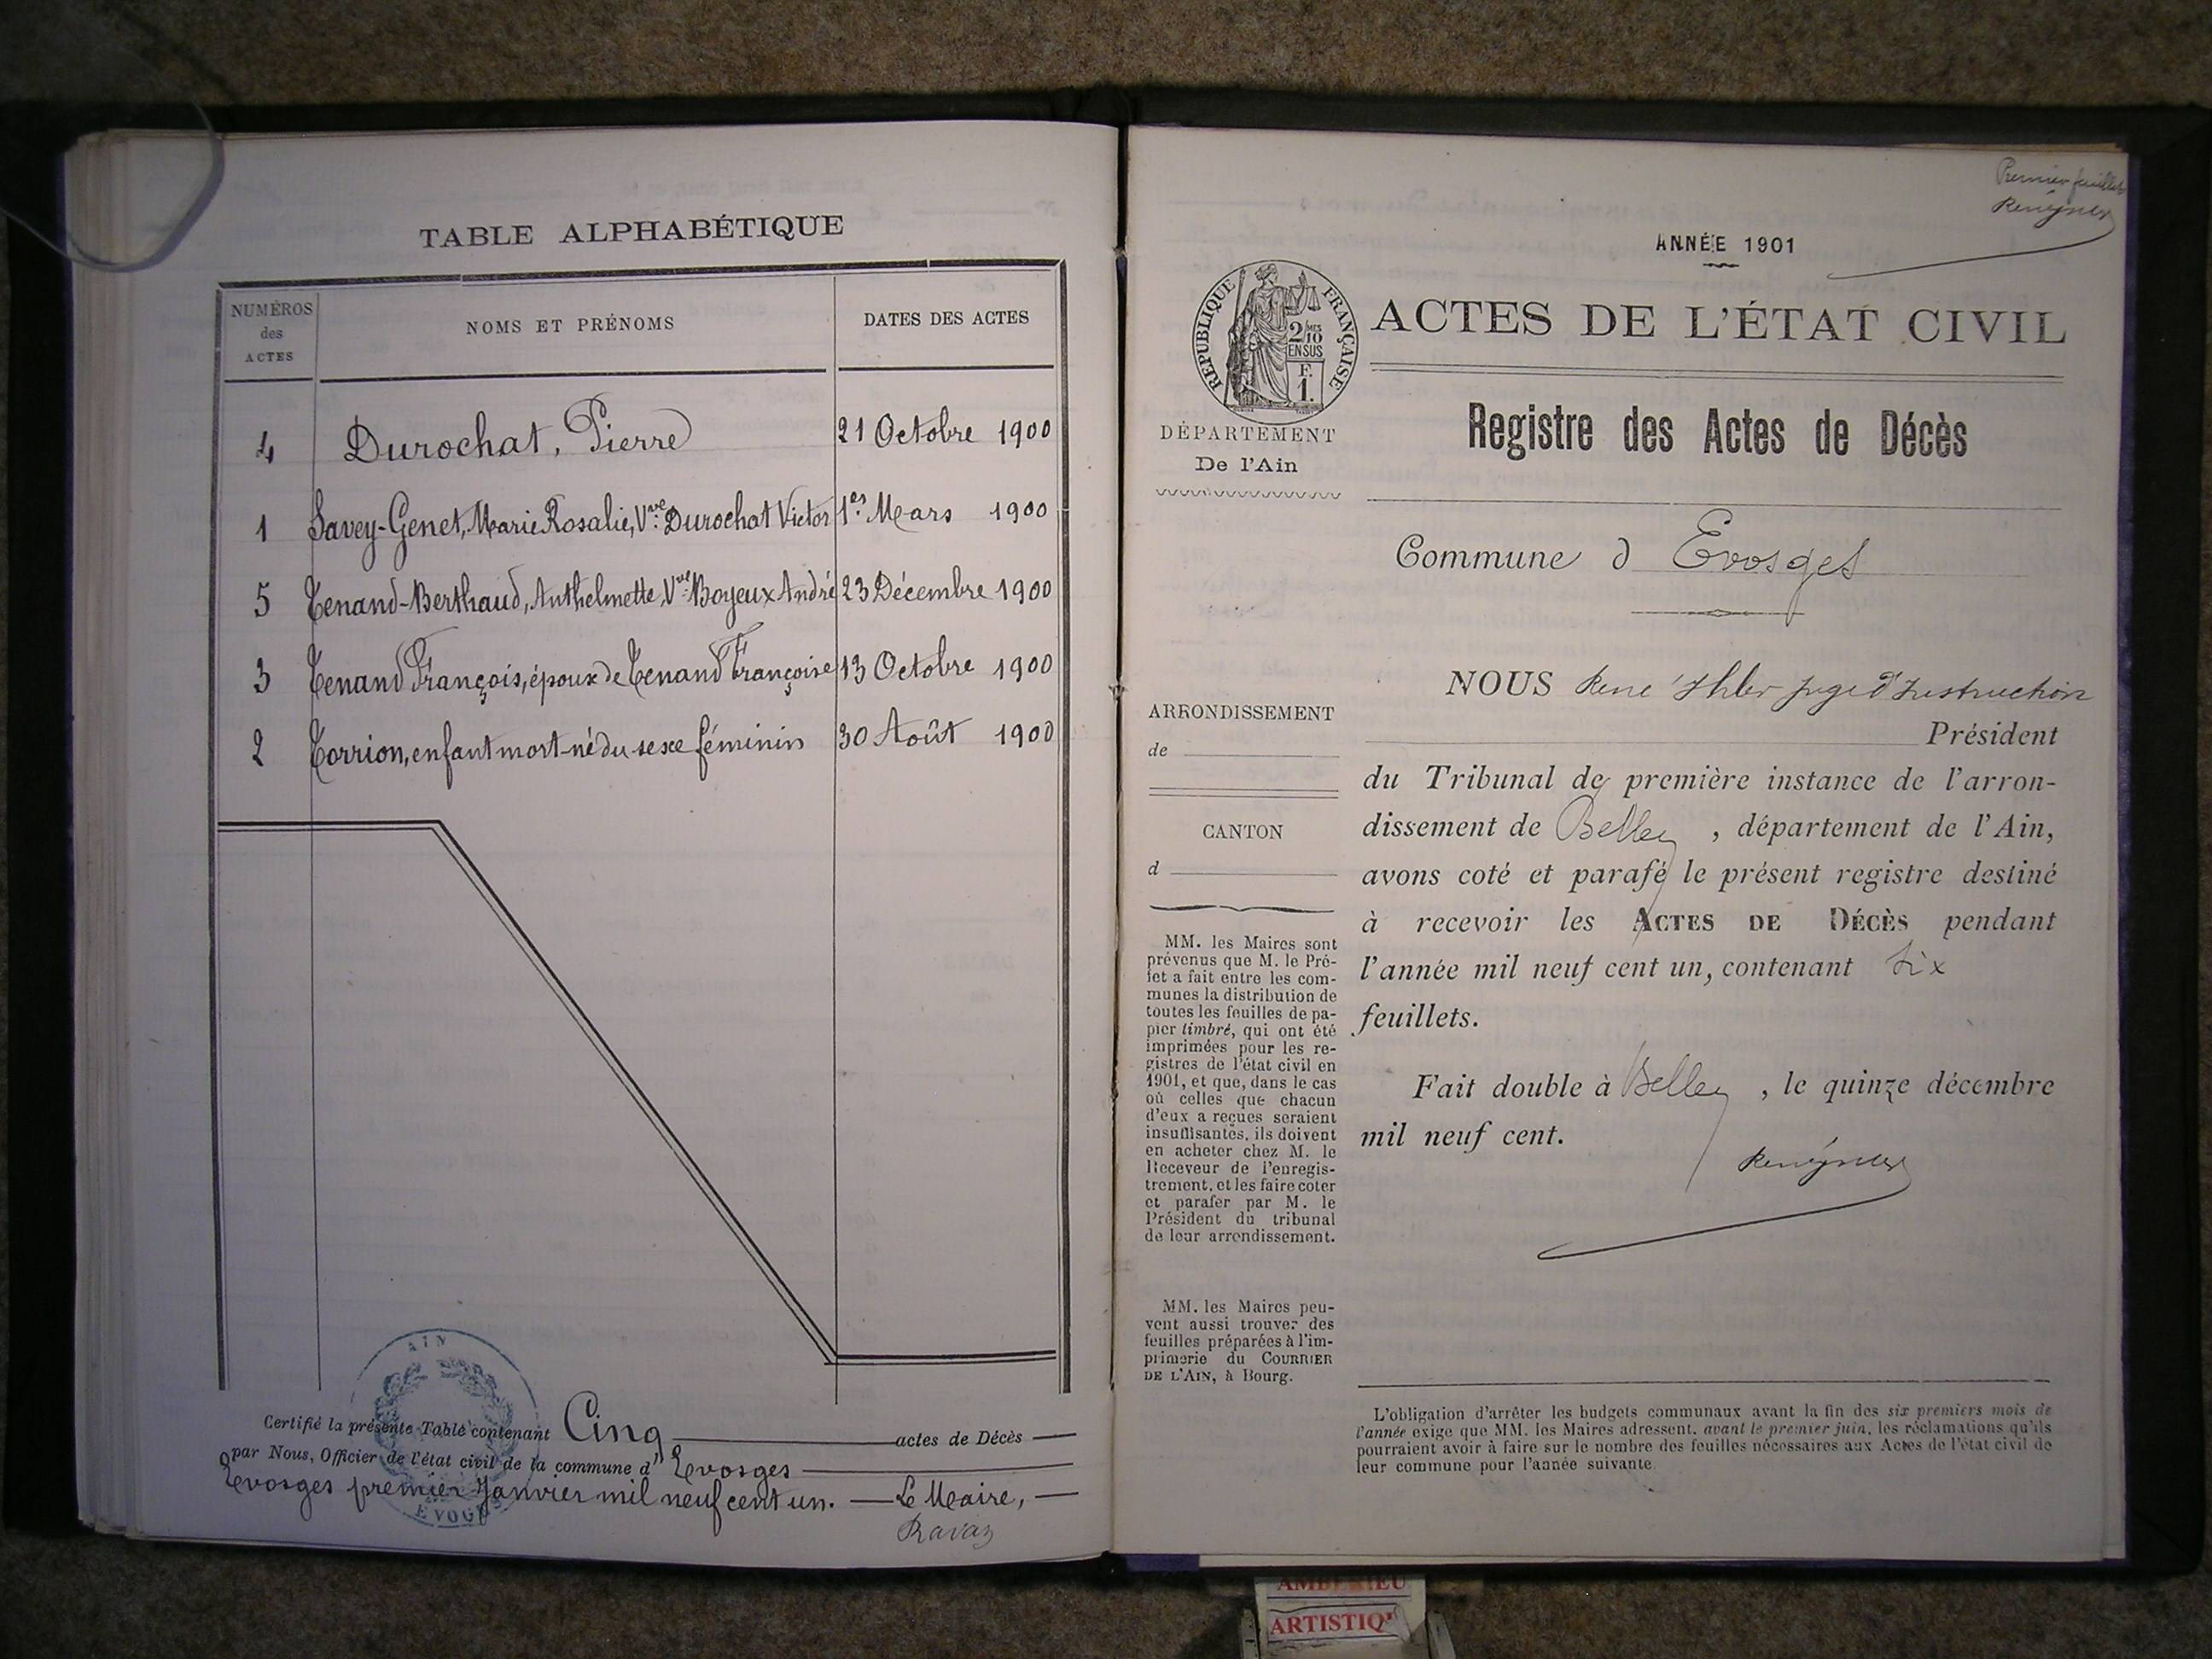 TABLE ALPHABÉTIQUE
NUMÉROS
des
ACTES
NOMS ET PRÉNOMS
DATES DES ACTES
4 Durochat, Pierre 21 Octobre 1900
1 Savey-Genet, Marie Rosalie, Vve Durochat Victor 1er Mars 1900
5 Tenand-Berthaud, Anthelmette, Vve Boyeux André 23 Décembre 1900
3 Tenand François, époux de Tenand Françoise 13 Octobre 1900
2 Torrion, enfant mort-né du sexe féminin 30 Août 1900
AIN
Certifié la présente Table contenant Cinq actes de Décès
par Nous, Officier de l'état civil de la commune d' Evosges
Evosges premier Janvier mil neuf cent un. Le Maire,
Ravaz
Premier feuillet
ANNÉE 1901
RÉPUBLIQUE FRANÇAISE
2/10MES
EN SUS
F.
1.
ACTES DE L'ÉTAT CIVIL
DÉPARTEMENT
De l'Ain
Registre des Actes de Décès
Commune d Evosges
NOUS René juge d'Instruction
Président
du Tribunal de première instance de l'arron-
dissement de Belley, département de l'Ain,
avons coté et parafé le présent registre destiné
à recevoir les ACTES DE DÉCÈS pendant
l'année mil neuf cent un, contenant Six
feuillets.
Fait double à Belley, le quinze décembre
mil neuf cent.
ARRONDISSEMENT
de
CANTON
d
MM. les Maires sont
prévenus que M. le Pré-
fet a fait entre les com-
munes la distribution de
toutes les feuilles de pa-
pier timbré, qui ont été
imprimées pour les re-
gistres de l'état civil en
1901, et que, dans le cas
où celles que chacun
d'eux a reçues seraient
insuffisantes, ils doivent
en acheter chez M. le
Receveur de l'enregis-
trement, et les faire coter
et parafer par M. le
Président du tribunal
de leur arrondissement.
MM. les Maires peu-
vent aussi trouver des
feuilles préparées à l'im-
primerie du COURRIER
DE L'AIN, à Bourg.
L'obligation d'arrêter les budgets communaux avant la fin des six premiers mois de
l'année exige que MM. les Maires adressent, avant le premier juin, les réclamations qu'ils
pourraient avoir à faire sur le nombre des feuilles nécessaires aux Actes de l'état civil de
leur commune pour l'année suivante.
ARTISTIQ